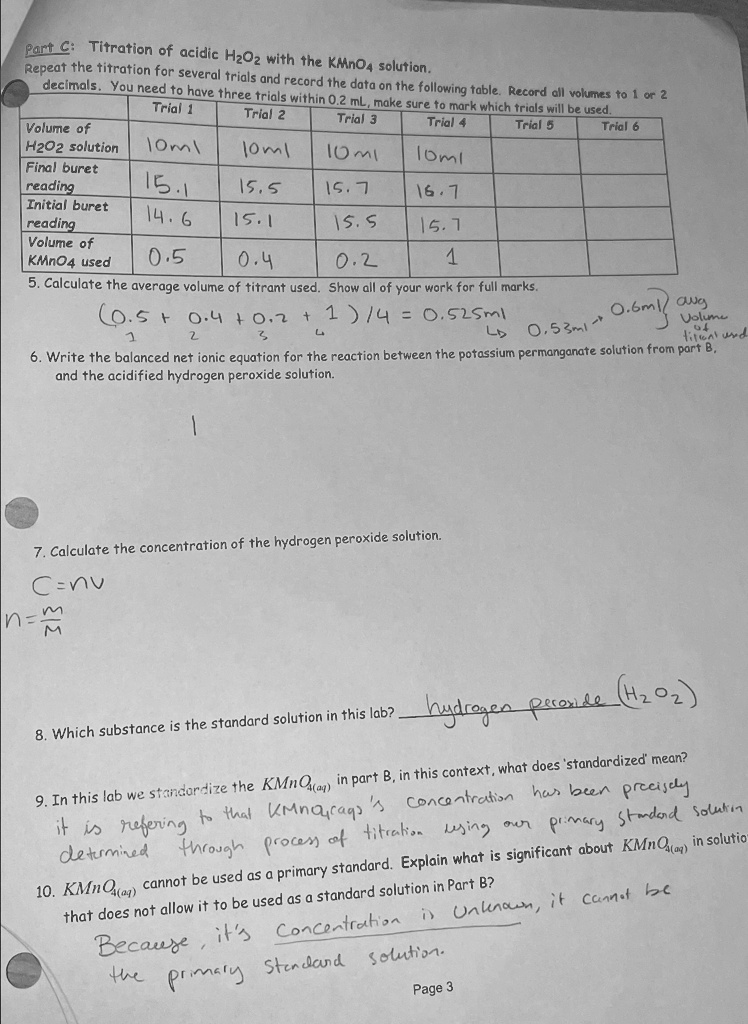 Part C: Titration of acidic H₂O₂ with the KMnO₄ solution.
Repeat the titration for several trials and record the data on the following table. Record all volumes to 1 or 2
decimals. You need to have three trials within 0.2 mL, make sure to mark which trials will be used.
Trial 1 Trial 2 Trial 3 Trial 4 Trial 5 Trial 6
Volume of
H2O2 solution 10ml 10ml 10ml 10ml
Final buret
reading 15.1 15.5 15.7 16.7
Initial buret
reading 14.6 15.1 15.5 15.7
Volume of
KMnO4 used 0.5 0.4 0.2 1
5. Calculate the average volume of titrant used. Show all of your work for full marks.
(0.5 + 0.4 + 0.2 + 1)/4 = 0.525ml
1 2 3 4
↳ 0.53ml → 0.6ml } avg
volume
of
titrant used
6. Write the balanced net ionic equation for the reaction between the potassium permanganate solution from part B,
and the acidified hydrogen peroxide solution.
7. Calculate the concentration of the hydrogen peroxide solution.
C=nv
n=m/M
8. Which substance is the standard solution in this lab? hydrogen peroxide (H₂O₂)
9. In this lab we standardize the KMnO₄(aq) in part B, in this context, what does 'standardized' mean?
it is refering to that KMnO₄(aq)'s concentration has been precisely
determined through process of titration using our primary standard solution
10. KMnO₄(aq) cannot be used as a primary standard. Explain what is significant about KMnO₄(aq) in solutio
that does not allow it to be used as a standard solution in Part B?
Because, it's concentration is unknown, it cannot be
the primary standard solution.
Page 3